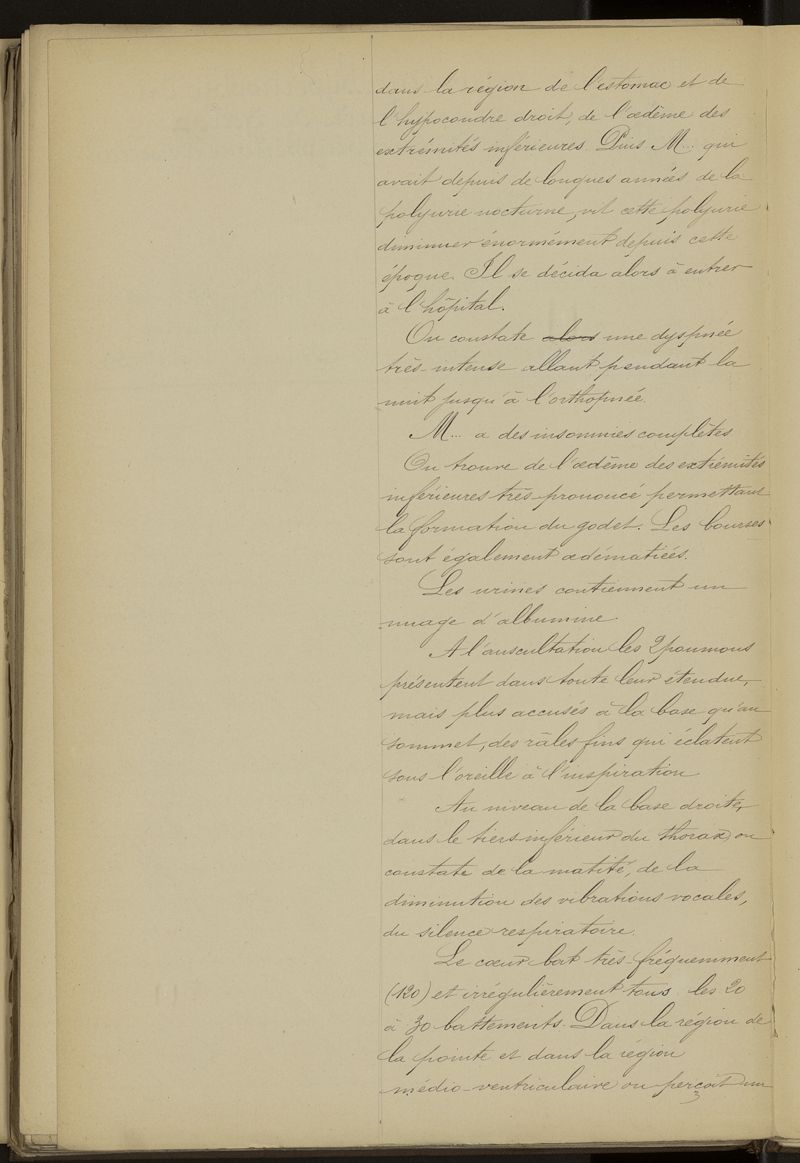 dans la région de l'estomac et de
l'hypocondre droit, de l'œdème des
extrémités inférieures. Puis M... qui
avait depuis de longues années de la
polyurie nocturne, vit cette polyurie
diminuer énormément depuis cette
époque. Il se décida alors à entrer
à l'hôpital.
On constate alors une dyspnée
très intense allant pendant la
nuit jusqu'à l'orthopnée.
M... a des insomnies complètes
On trouve de l'œdème des extrémités
inférieures très prononcé permettant
la formation du godet. Les bourses
sont également œdématiées.
Les urines contiennent un
nuage d'albumine
A l'auscultation les 2 poumons
présentent dans toute leur étendue,
mais plus accusés à la base qu'au
sommet, des râles fins qui éclatent
sous l'oreille à l'inspiration
Au niveau de la base droite,
dans le tiers inférieur du thorax, on
constate de la matité, de la
diminution des vibrations vocales,
du silence respiratoire.
Le cœur bat très fréquemment
(120) et irrégulièrement tous les 20
à 30 battements. Dans la région de
la pointe et dans la région
médio-ventriculaire on perçoit un
3